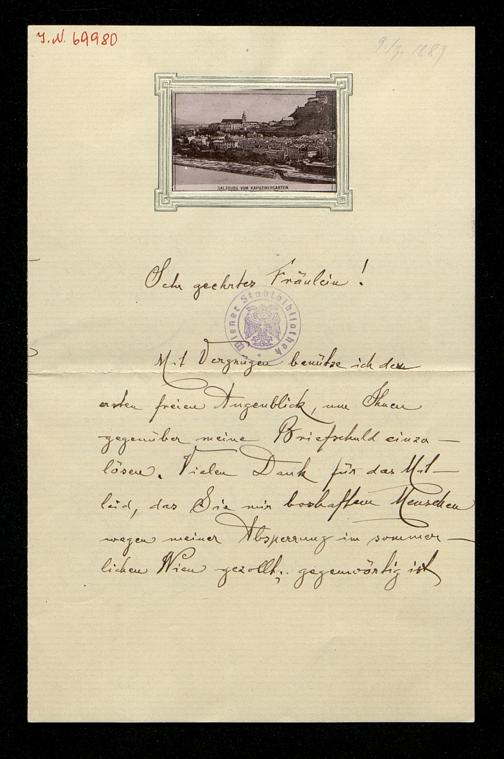 J. N. 69980
9./3. 1889
SALZBURG VOM KAPUZINERGARTEN
Sehr geehrtes Fräulein!
Wiener Stadtbibliothek
Mit Vergnügen benütze ich den
ersten freien Augenblick, um Ihnen
gegenüber meine Briefschuld einzu-
lösen. Vielen Dank für das Mit-
leid, das Sie mir boshaftem Menschen
wegen meiner Absperrung im sommer-
lichen Wien gezollt; gegenwärtig ist